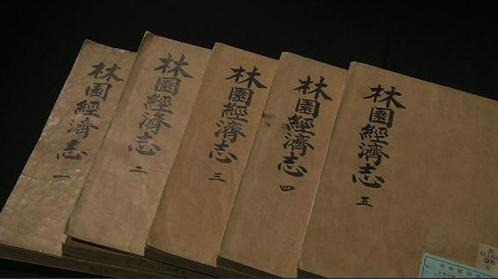 林園經濟志 一
林園經濟志 二
林園經濟志 三
林園經濟志 四
林園經濟志 五